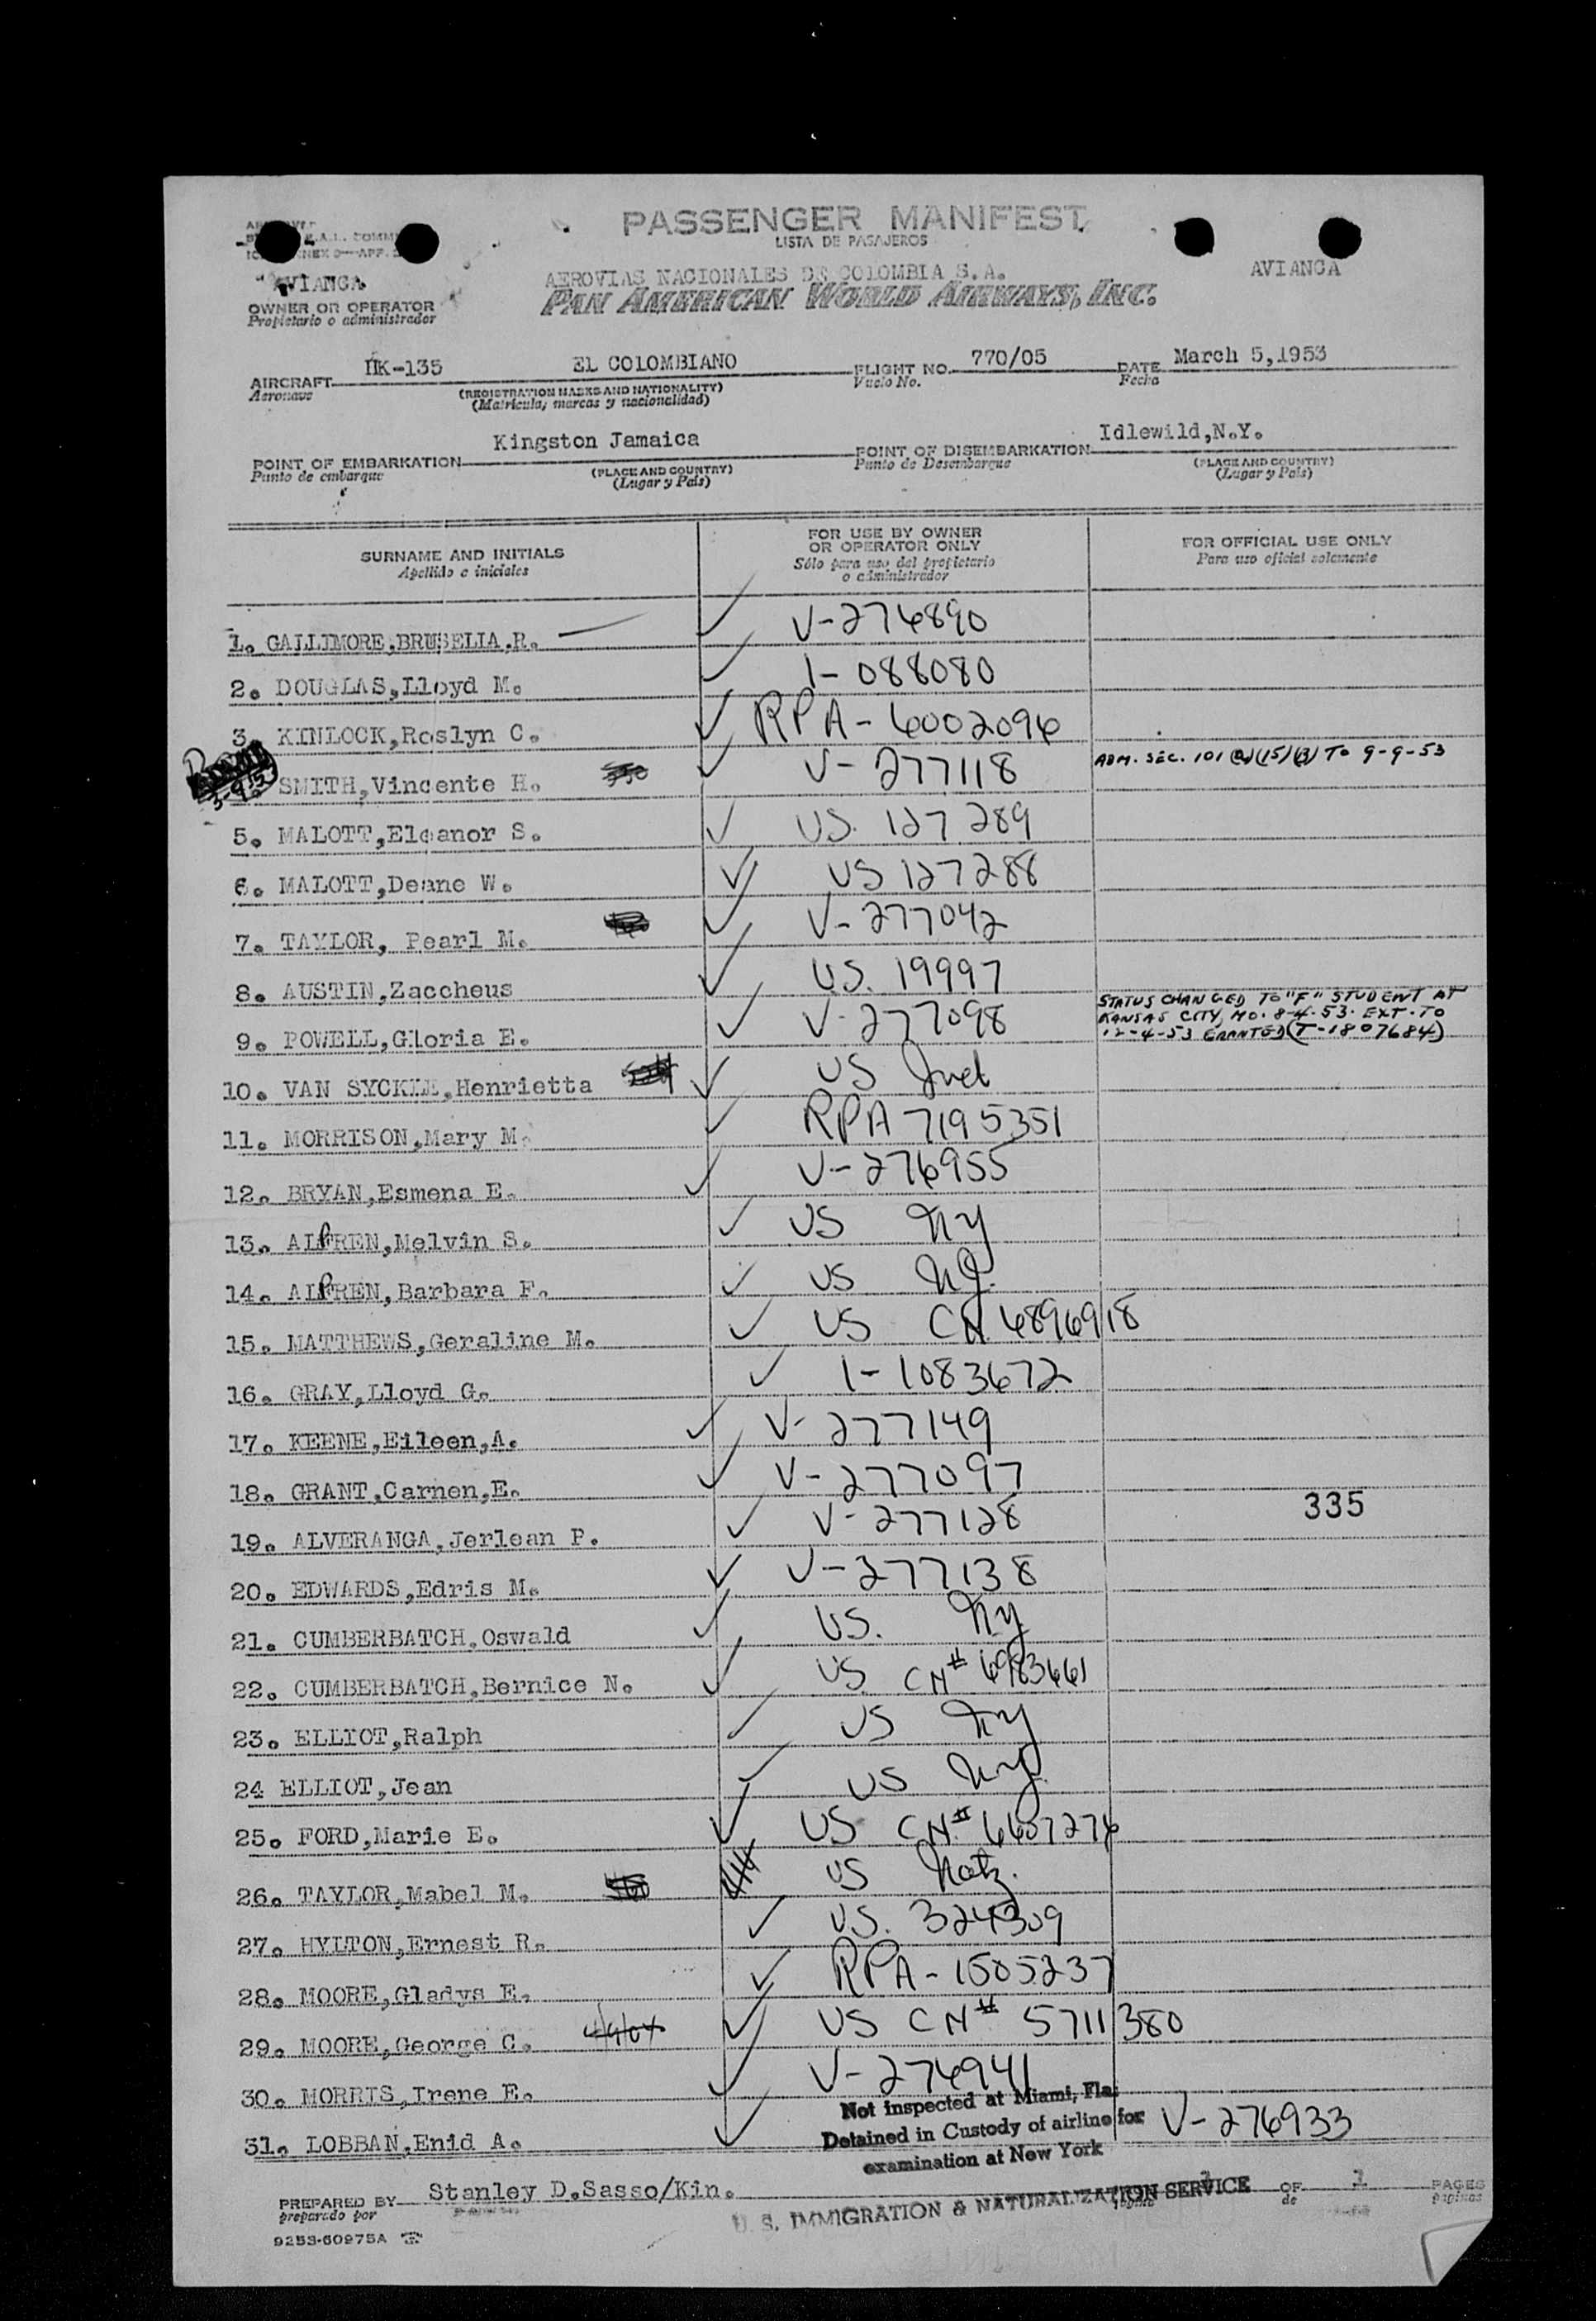 PASSENGER MANIFEST
LISTA DE PASAJEROS
AVIANCA
AEROVIAS NACIONALES DE COLOMBIA S.A.
AVIANCA
PAN AMERICAN WORLD AIRWAYS, INC.
OWNER OR OPERATOR
Propietario o administrador
AIRCRAFT HK-135 EL COLOMBIANO FLIGHT NO. 770/05 DATE March 5,1953
Aeronave (REGISTRATION MARKS AND NATIONALITY) Vuelo No. Fecha
(Matricula, marcas y nacionalidad)
POINT OF EMBARKATION Kingston Jamaica POINT OF DISEMBARKATION Idlewild,N.Y.
Punto de embarque (PLACE AND COUNTRY) Punto de Desembarque (PLACE AND COUNTRY)
(Lugar y País) (Lugar y País)
SURNAME AND INITIALS FOR USE BY OWNER OR OPERATOR ONLY FOR OFFICIAL USE ONLY
Apellido e iniciales Sólo para uso del propietario o administrador Para uso oficial solamente
1. GALLIMORE,BRUSELIA.R. V-276890
2. DOUGLAS,Lloyd M. 1-088080
3. KINLOCK,Roslyn C. RPA-6002096
SMITH,Vincente H. V-277118 ADM. SEC. 101 (a)(15)(B) TO 9-9-53
5. MALOTT,Eleanor S. US. 127289
6. MALOTT,Deane W. US 127288
7. TAYLOR, Pearl M. V-277042
8. AUSTIN,Zaccheus US. 19997
9. POWELL,Gloria E. V-277098 STATUS CHANGED TO "F" STUDENT AT
KANSAS CITY, MO. 8-4-53. EXT. TO
12-4-53 GRANTED (T-1807684)
10. VAN SYCKLE,Henrietta US
11. MORRISON,Mary M. RPA 7195351
12. BRYAN,Esmena E. V-276955
13. ALPREN,Melvin S. US NY
14. ALPREN,Barbara F. US NJ.
15. MATTHEWS,Geraline M. US CN 6896918
16. GRAY,Lloyd G. 1-1083672
17. KEENE,Eileen,A. V-277149
18. GRANT,Carmen,E. V-277097
19. ALVERANGA,Jerlean P. V-277128 335
20. EDWARDS,Edris M. V-277138
21. CUMBERBATCH,Oswald US. NY
22. CUMBERBATCH,Bernice N. US CN# 6983661
23. ELLIOT,Ralph US NY
24 ELLIOT,Jean US NY.
25. FORD,Marie E. US CN# 6607276
26. TAYLOR,Mabel M. US Natz.
27. HYLTON,Ernest R. US. 324309
28. MOORE,Gladys E. RPA-1505237
29. MOORE,George C. US CN# 5711380
30. MORRIS,Irene E. V-276941
31. LOBBAN,Enid A. V-276933
Not inspected at Miami, Fla.
Detained in Custody of airline for
examination at New York
U. S. IMMIGRATION & NATURALIZATION SERVICE
PREPARED BY Stanley D.Sasso/Kin. 1 OF 1 PAGES
preparado por de paginas
9253-60975A